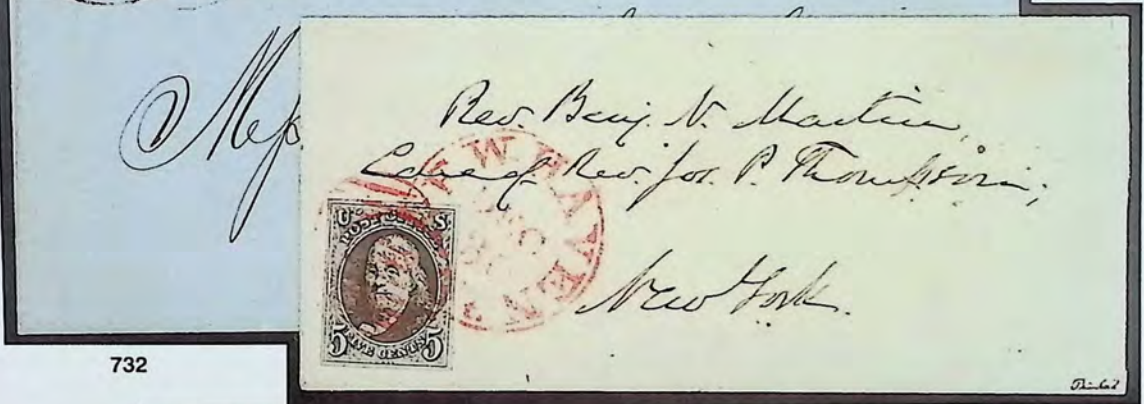 Mess
Rev. Benj. N. Martin,
Care of Rev. Jos. P. Thompson,
New York.
NEW HAVEN
U S
POST OFFICE
5 FIVE CENTS 5
732